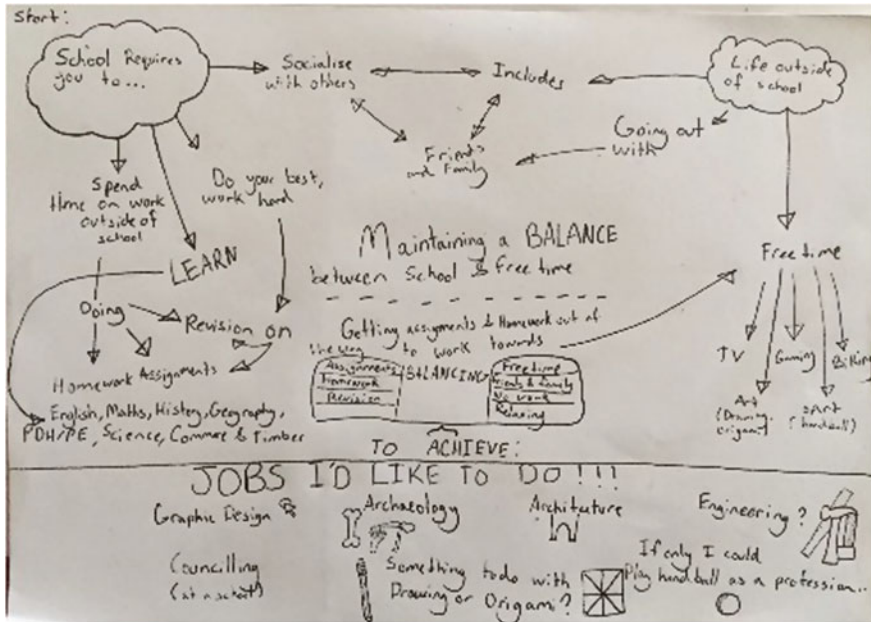 Start:
School Requires
you to...
Socialise
with others
Includes
Life outside
of school
Going out
with
Friends
and Family
Spend
time on work
outside of
school
Do your best,
work hard
LEARN
Maintaining a BALANCE
between School & Free time
Free time
Doing
Revision on
Homework Assignments
English, Maths, History, Geography,
PDH/PE, Science, Commerce & Timber
Getting assigments & Homework out of
the way
to work towards
Assignments
Homework
Revision
BALANCING
Free time
Friends & family
No work
Relaxing
TV
Gaming
Art
(Drawing,
origami)
sport
(handball)
TO ACHIEVE:
JOBS I'D LIKE TO DO!!!
Graphic Design
Archaeology
Engineering?
Councilling
(at a school)
Something to do with
Drawing or Origami?
If only I could
Play handball as a profession...